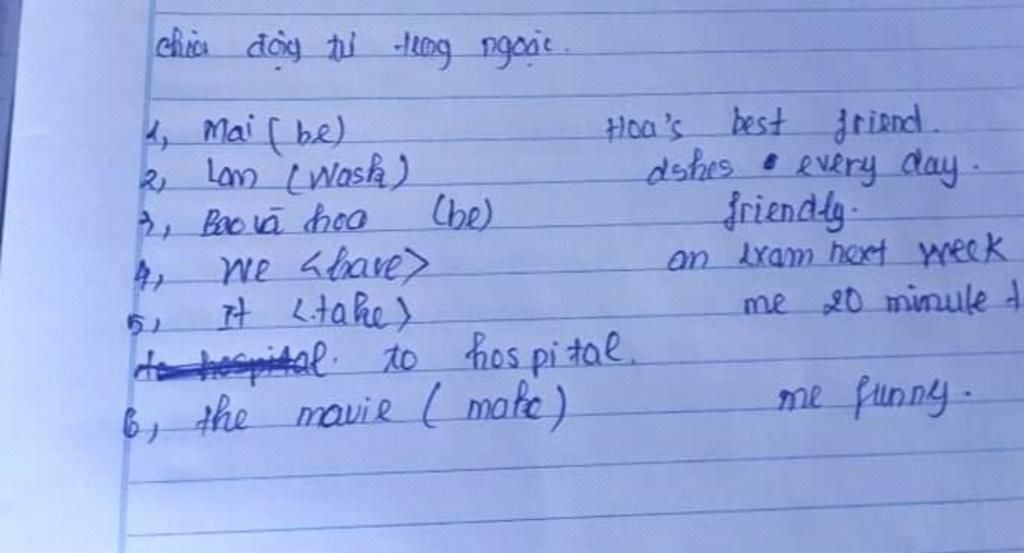 chia động từ trong ngoặc.
1, Mai (be) Hoa's best friend.
2, Lan (Wash) dshes every day.
3, Bao và hoa (be) friendly.
4, We <have> an exam next week
5, It <take> me 20 minute t
to hospital. to hospital.
6, the mavie (make) me funny.